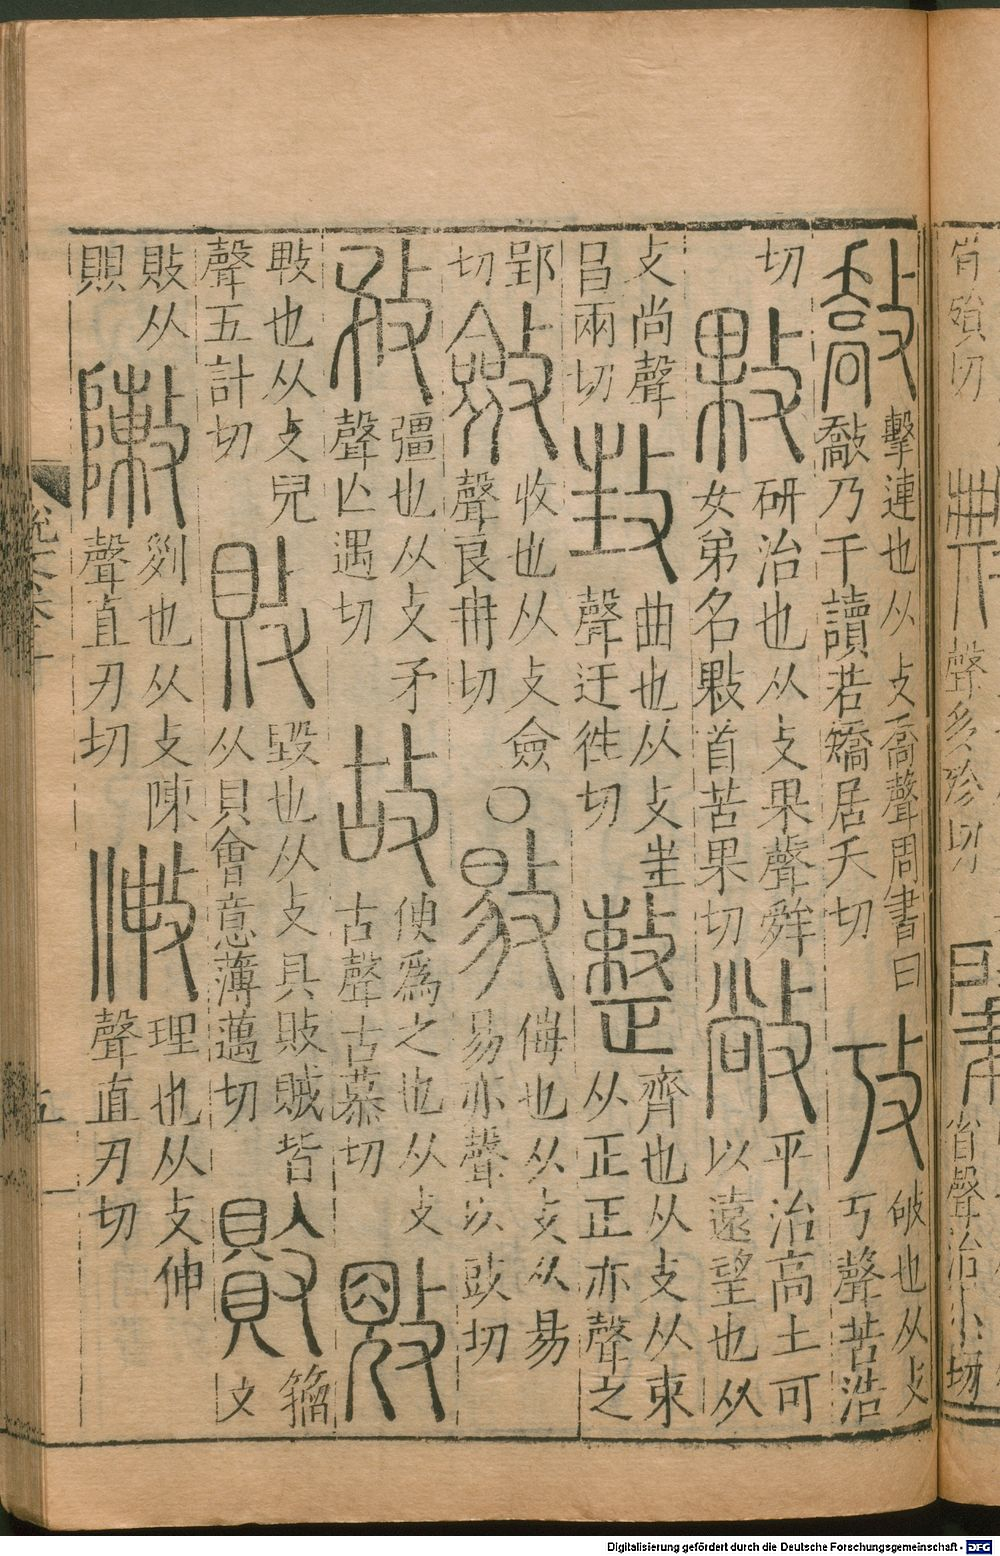 敿擊連也从攴喬聲周書曰敿乃干讀若矯居夭切攷也从攴丂聲苦浩
切敤研治也从攴果聲舜女弟名敤首苦果切敞平治高土可以遠望也从
攴尚聲昌兩切曲也从攴㞷聲迂往切整齊也从攴从束从正正亦聲之
郢切斂收也从攴僉聲良冉切○敡侮也从攴从易易亦聲以豉切
敄彊也从攴矛聲亾遇切故使爲之也从攴古聲古慕切
也从攴兒聲五計切敗毀也从攴具敗賊皆从貝會意薄邁切籀文
敗从賏敶列也从攴陳聲直刃切理也从攴伸聲直刃切
五
Digitalisierung gefördert durch die Deutsche Forschungsgemeinschaft - DFG